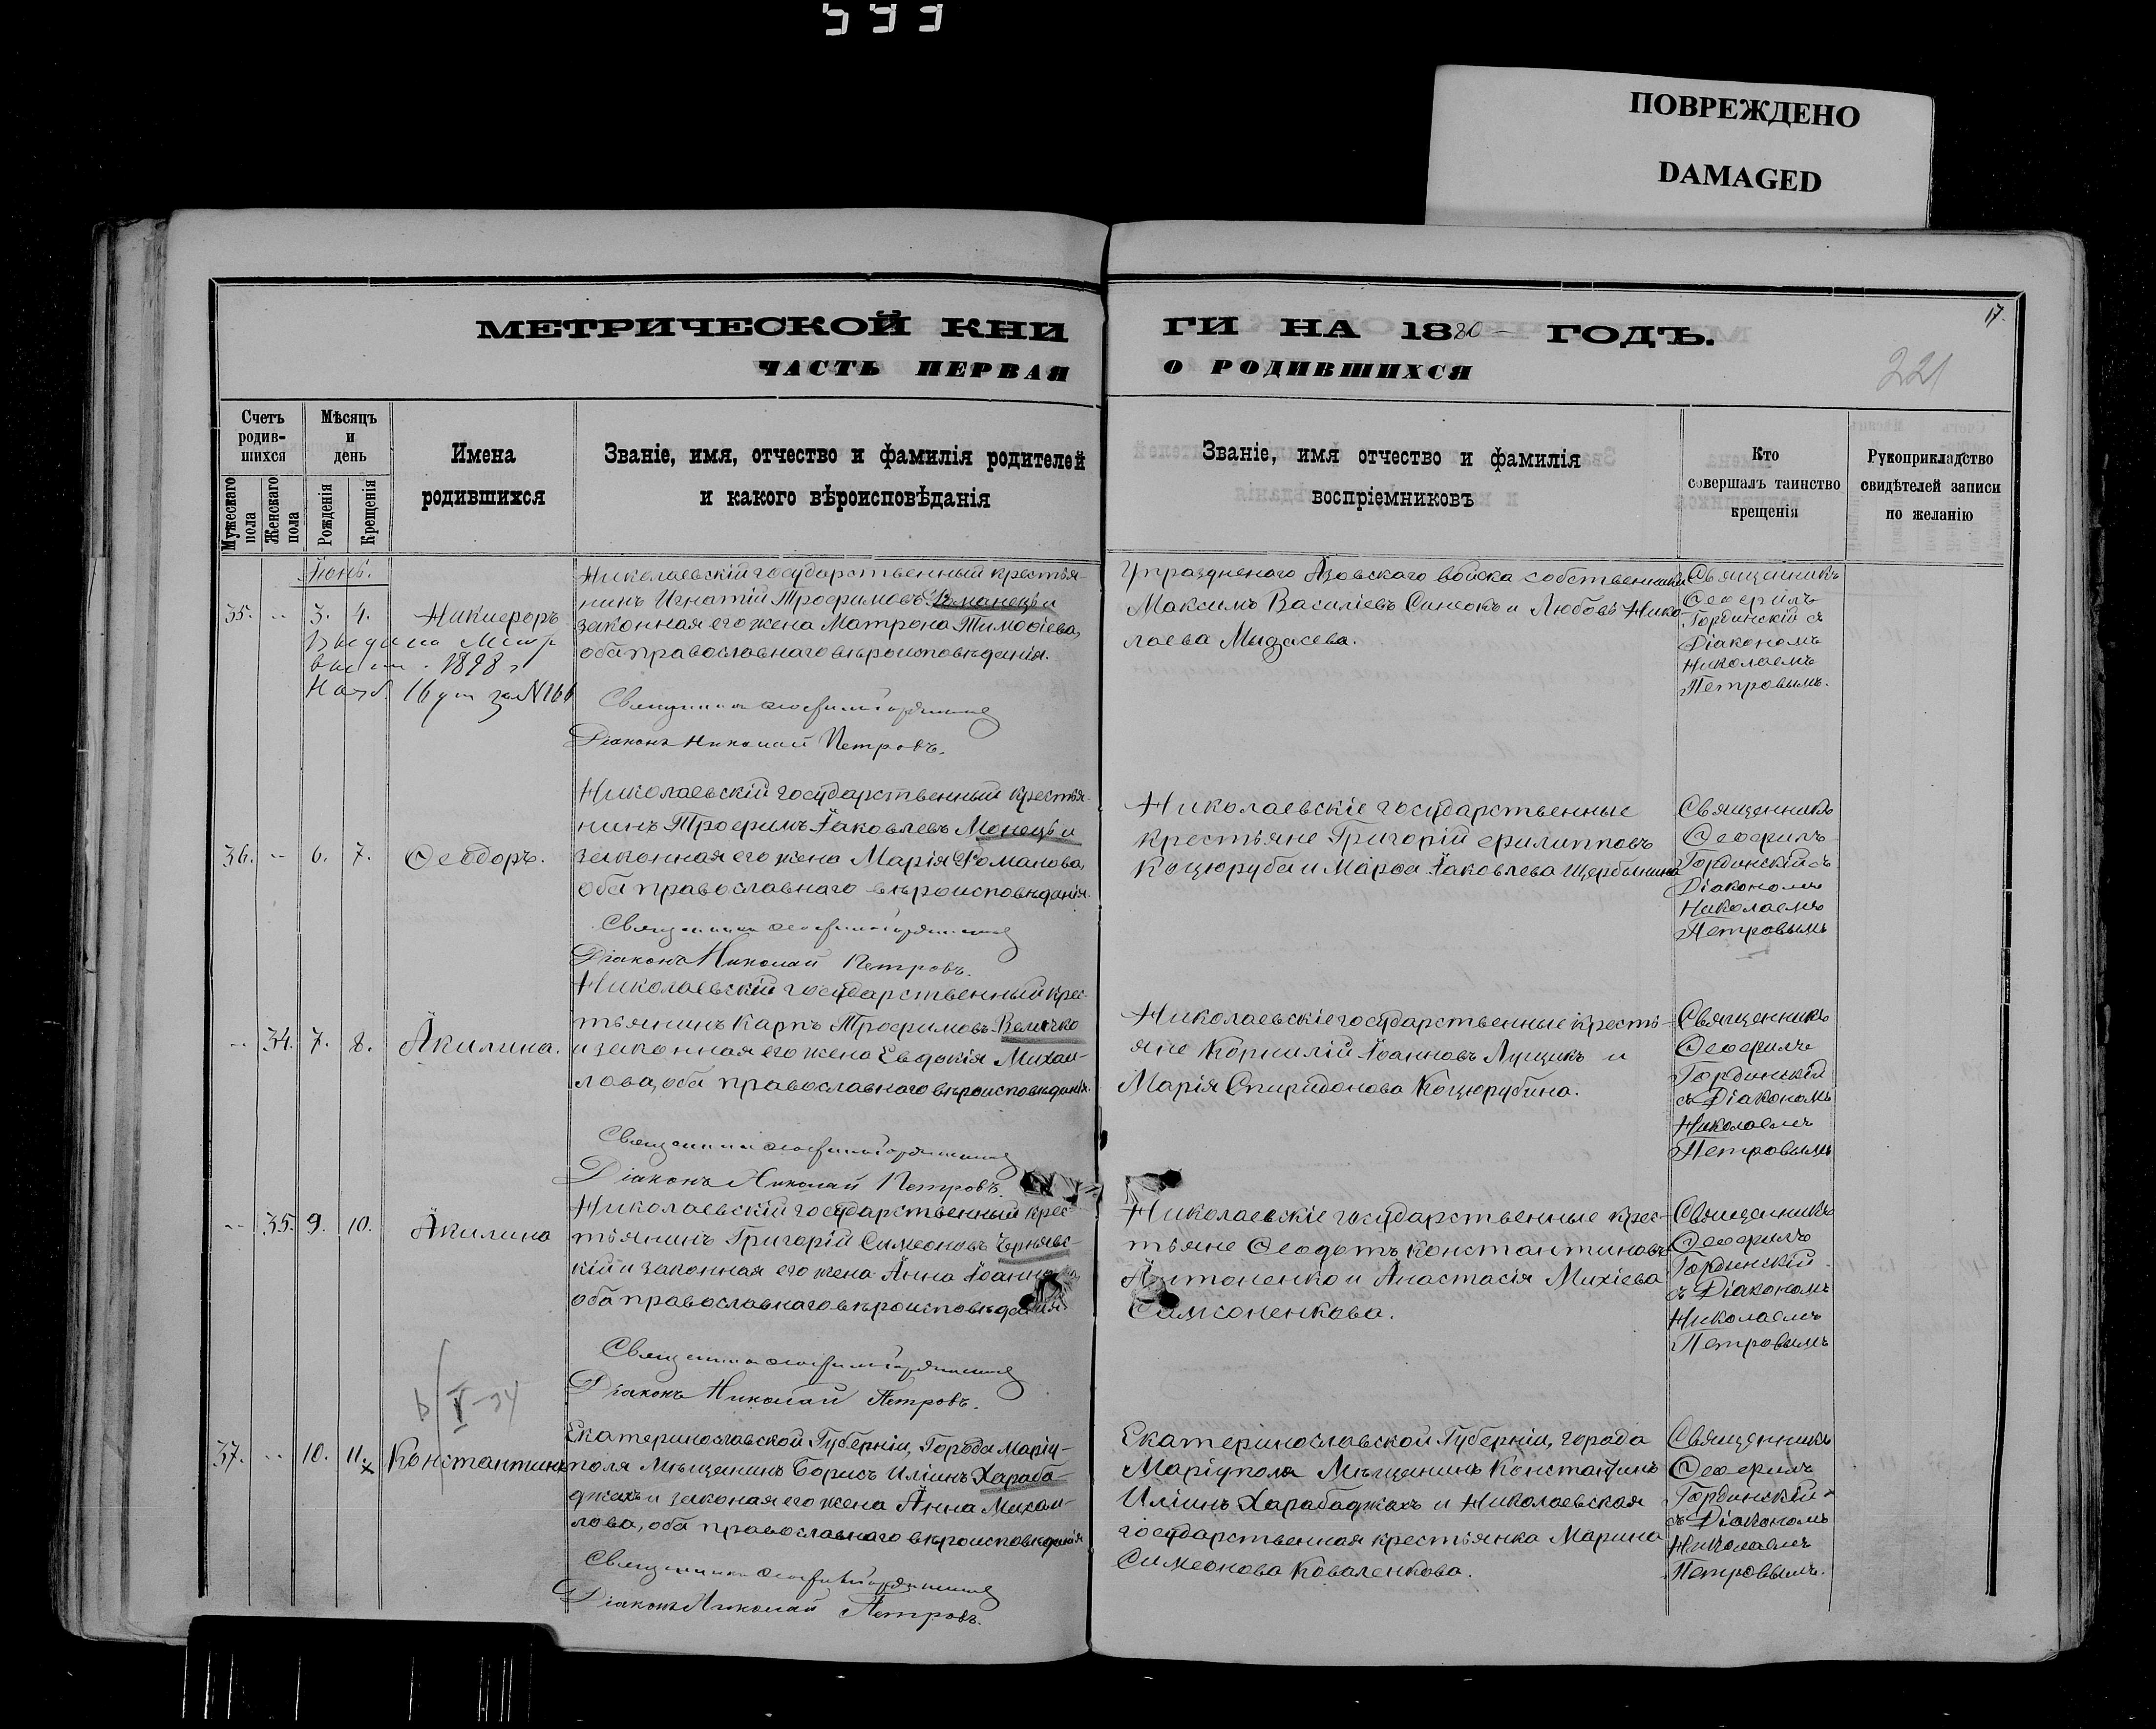 ПОВРЕЖДЕНО
DAMAGED
17.
221
МЕТРИЧЕСКОЙ КНИ ГИ НА 1880 ГОДЪ.
ЧАСТЬ ПЕРВАЯ О РОДИВШИХСЯ
Счетъ родив-шихся
Мужескаго пола
Женскаго пола
Мѣсяцъ и день
Рожденія
Крещенія
Имена родившихся
Званіе, имя, отчество и фамилія родителей
и какого вѣроисповѣданія
Званіе, имя отчество и фамилія
воспріемниковъ
Кто
совершалъ таинство
крещенія
Рукоприкладство
свидѣтелей записи
по желанію
Іюнь.
35. -- 3. 4. Никифоръ
1898 г
16 дня за № 166
Николаевскій государственный крестья-
нинъ Игнатій Трофимовъ и
законная его жена Матрона Тимоѳіева,
оба православнаго вѣроисповѣданія.
Діаконъ Николай Петровъ.
Упраздненого Азовскаго войска собственники
Максимъ Василіевъ Синеокъ и Любовь Нико-
лаева
Священникъ
Ѳеофилъ
Гординскій съ
Діакономъ
Николаемъ
Петровымъ.
36. -- 6. 7. Ѳеодоръ.
Николаевскій государственный крестья-
нинъ Трофимъ Іаковлевъ Монецъ и
законная его жена Марія Романова,
оба православнаго вѣроисповѣданія.
Діаконъ Николай Петровъ.
Николаевскіе государственные
крестьяне Григорій Филипповъ
Коцюруба и Марѳа Іаковлева Щербинина
Священникъ
Ѳеофилъ
Гординскій съ
Діакономъ
Николаемъ
Петровымъ
-- 34. 7. 8. Акилина.
Николаевскій государственный крес-
тьянинъ Карпъ Трофимовъ Величко
и законная его жена Евдокія Михаи-
лова, оба православнаго вѣроисповѣданія.
Діаконъ Николай Петровъ.
Николаевскіе государственные кресть-
яне Корнилій Іоанновъ Лущикъ и
Марія Спиридонова Коцюрубина.
Священникъ
Ѳеофилъ
Гординскій
съ Діакономъ
Николаемъ
Петровымъ
-- 35. 9. 10. Акилина
Николаевскій государственный крес-
тьянинъ Григорій Симеоновъ Чернявс-
кій и законная его жена Анна
оба православнаго вѣроисповѣданія
Діаконъ Николай Петровъ.
Николаевскіе государственные крес-
тьяне Ѳеодотъ Константиновъ
Антоненко и Анастасія Михіева
Самсоненкова.
Священникъ
Ѳеофилъ
Гординскій
съ Діакономъ
Николаемъ
Петровымъ
37. -- 10. 11. Константинъ
Екатеринославской Губерніи, Города Маріу-
поля Мѣщанинъ Борисъ Иліинъ Хараба-
джахъ и законая его жена Анна Михаи-
лова, оба православнаго вѣроисповѣданія
Діаконъ Николай Петровъ.
Екатеринославской Губерніи, города
Маріуполя Мѣщанинъ Константинъ
Иліинъ Харабаджахъ и Николаевская
государственная крестьянка Марина
Симеонова Коваленкова.
Священникъ
Ѳеофилъ
Гординскій
съ Діакономъ
Николаемъ
Петровымъ.